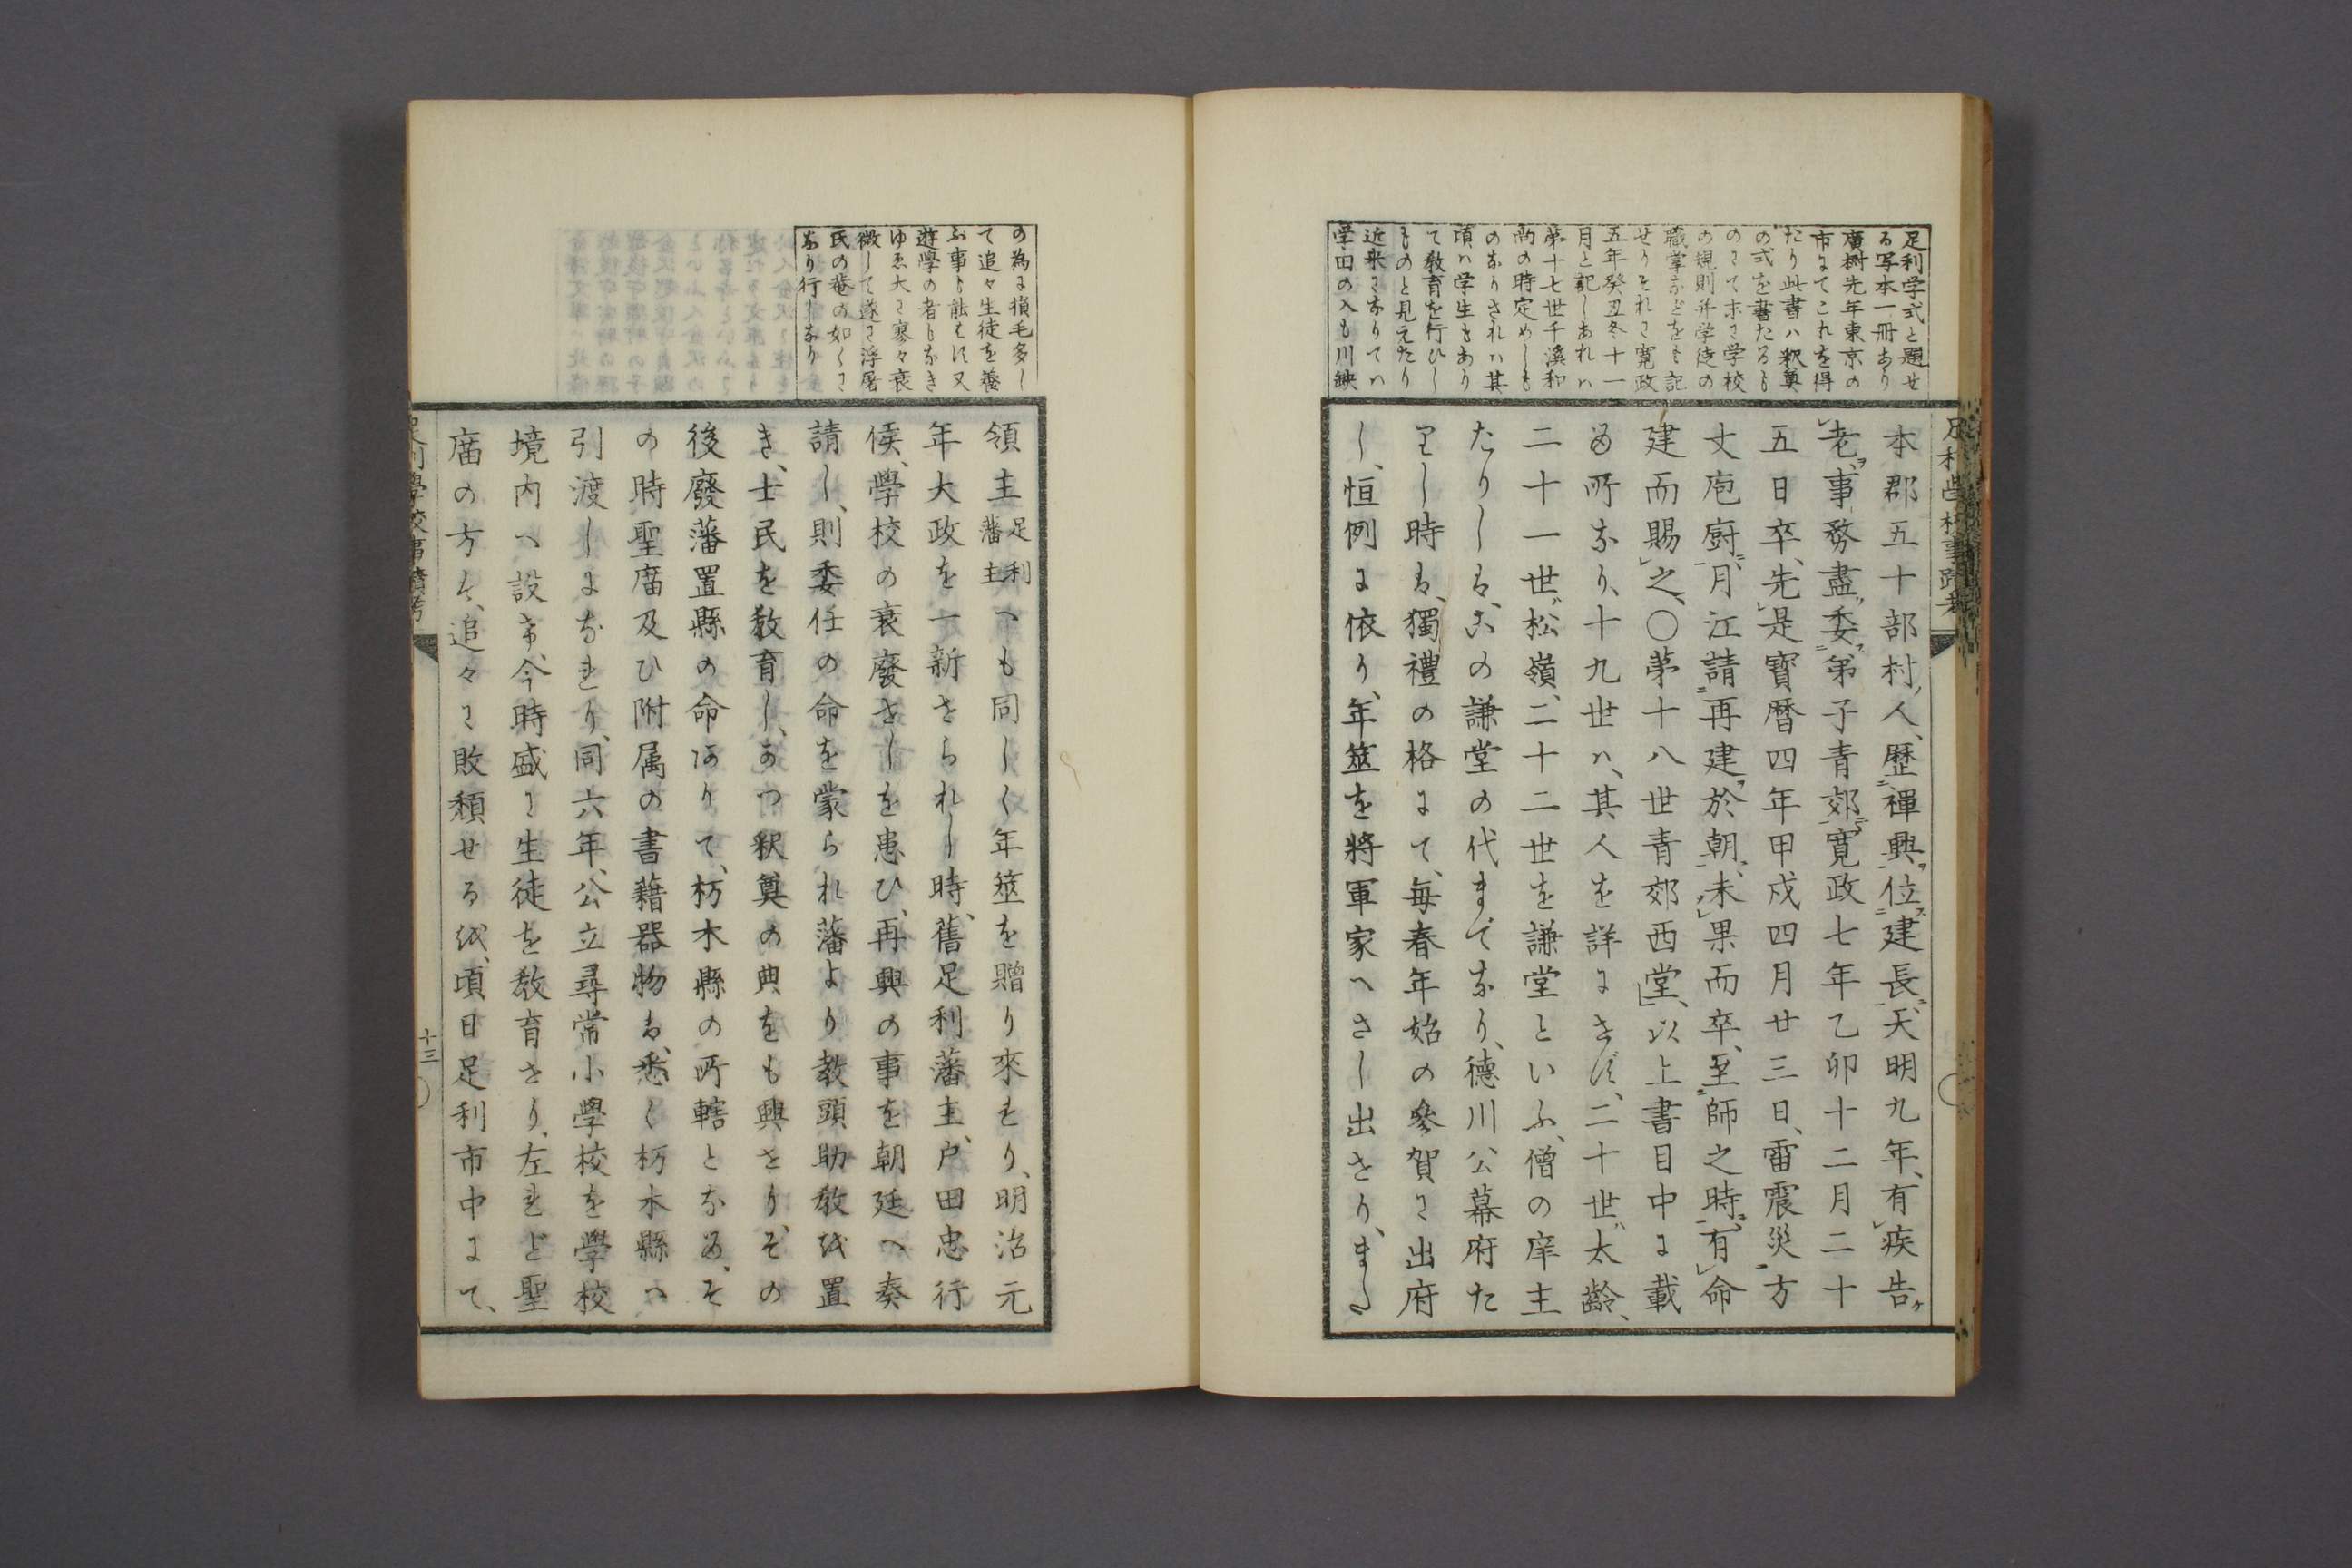 足利学式と題せ
る写本一冊あり
廣樹先年東京の
市にてこれを得
たり此書ハ釈奠
の式を書たるも
のにて末に学校
の規則并学徒の
職掌などをも記
せりそれに寛政
五年癸丑冬十一
月と記しあれハ
第十七世千溪和
尚の時定めしも
のなりされハ其
頃ハ学生もあり
て教育を行ひし
ものと見えたり
近来になりてハ
学田の入も川缺
本郡五十部村ノ人、歴禅興位建長、天明九年、有疾告
老、事務盡委弟子青郊寛政七年乙卯十二月二十
五日卒、先是寶暦四年甲戌四月廿三日、雷震災方
丈庖厨、月江請再建於朝、未果而卒、至師之時、有命
建而賜之、〇第十八世青郊西堂、以上書目中に載
る所なり、十九世ハ、其人を詳にきず、二十世太齢、
二十一世松嶺、二十二世を謙堂といふ、僧の庠主
たりしは、この謙堂の代までなり、徳川公幕府た
りし時は、獨禮の格にて、毎春年始の參賀に出府
し、恒例に依り、年筮を將軍家へさし出せり、また
足利學校事蹟考
の為に損毛多し
て追々生徒を養
ふ事も能はす又
遊學の者もなき
ゆゑ大に寥々衰
微して遂に浮屠
氏の菴の如くに
なり行しなり
領主足利藩主へも同しく年筮を贈り來れり、明治元
年大政を一新せられし時、舊足利藩主、戸田忠行
侯、學校の衰廢せしを患ひ、再興の事を朝廷へ奏
請し、則委任の命を蒙られ藩より教頭助教を置
き、士民を教育し、かつ釈奠の典をも興せり、その
後廢藩置縣の命ありて、栃木縣の所轄となる、そ
の時聖庿及ひ附属の書藉器物は、悉く栃木縣へ
引渡しになれり、同六年、公立尋常小學校を學校
境内へ設き、今時盛に生徒を教育せり、左れど聖
庿の方は、追々に敗頽せるを、頃日足利市中にて、
足利學校事蹟考
十三